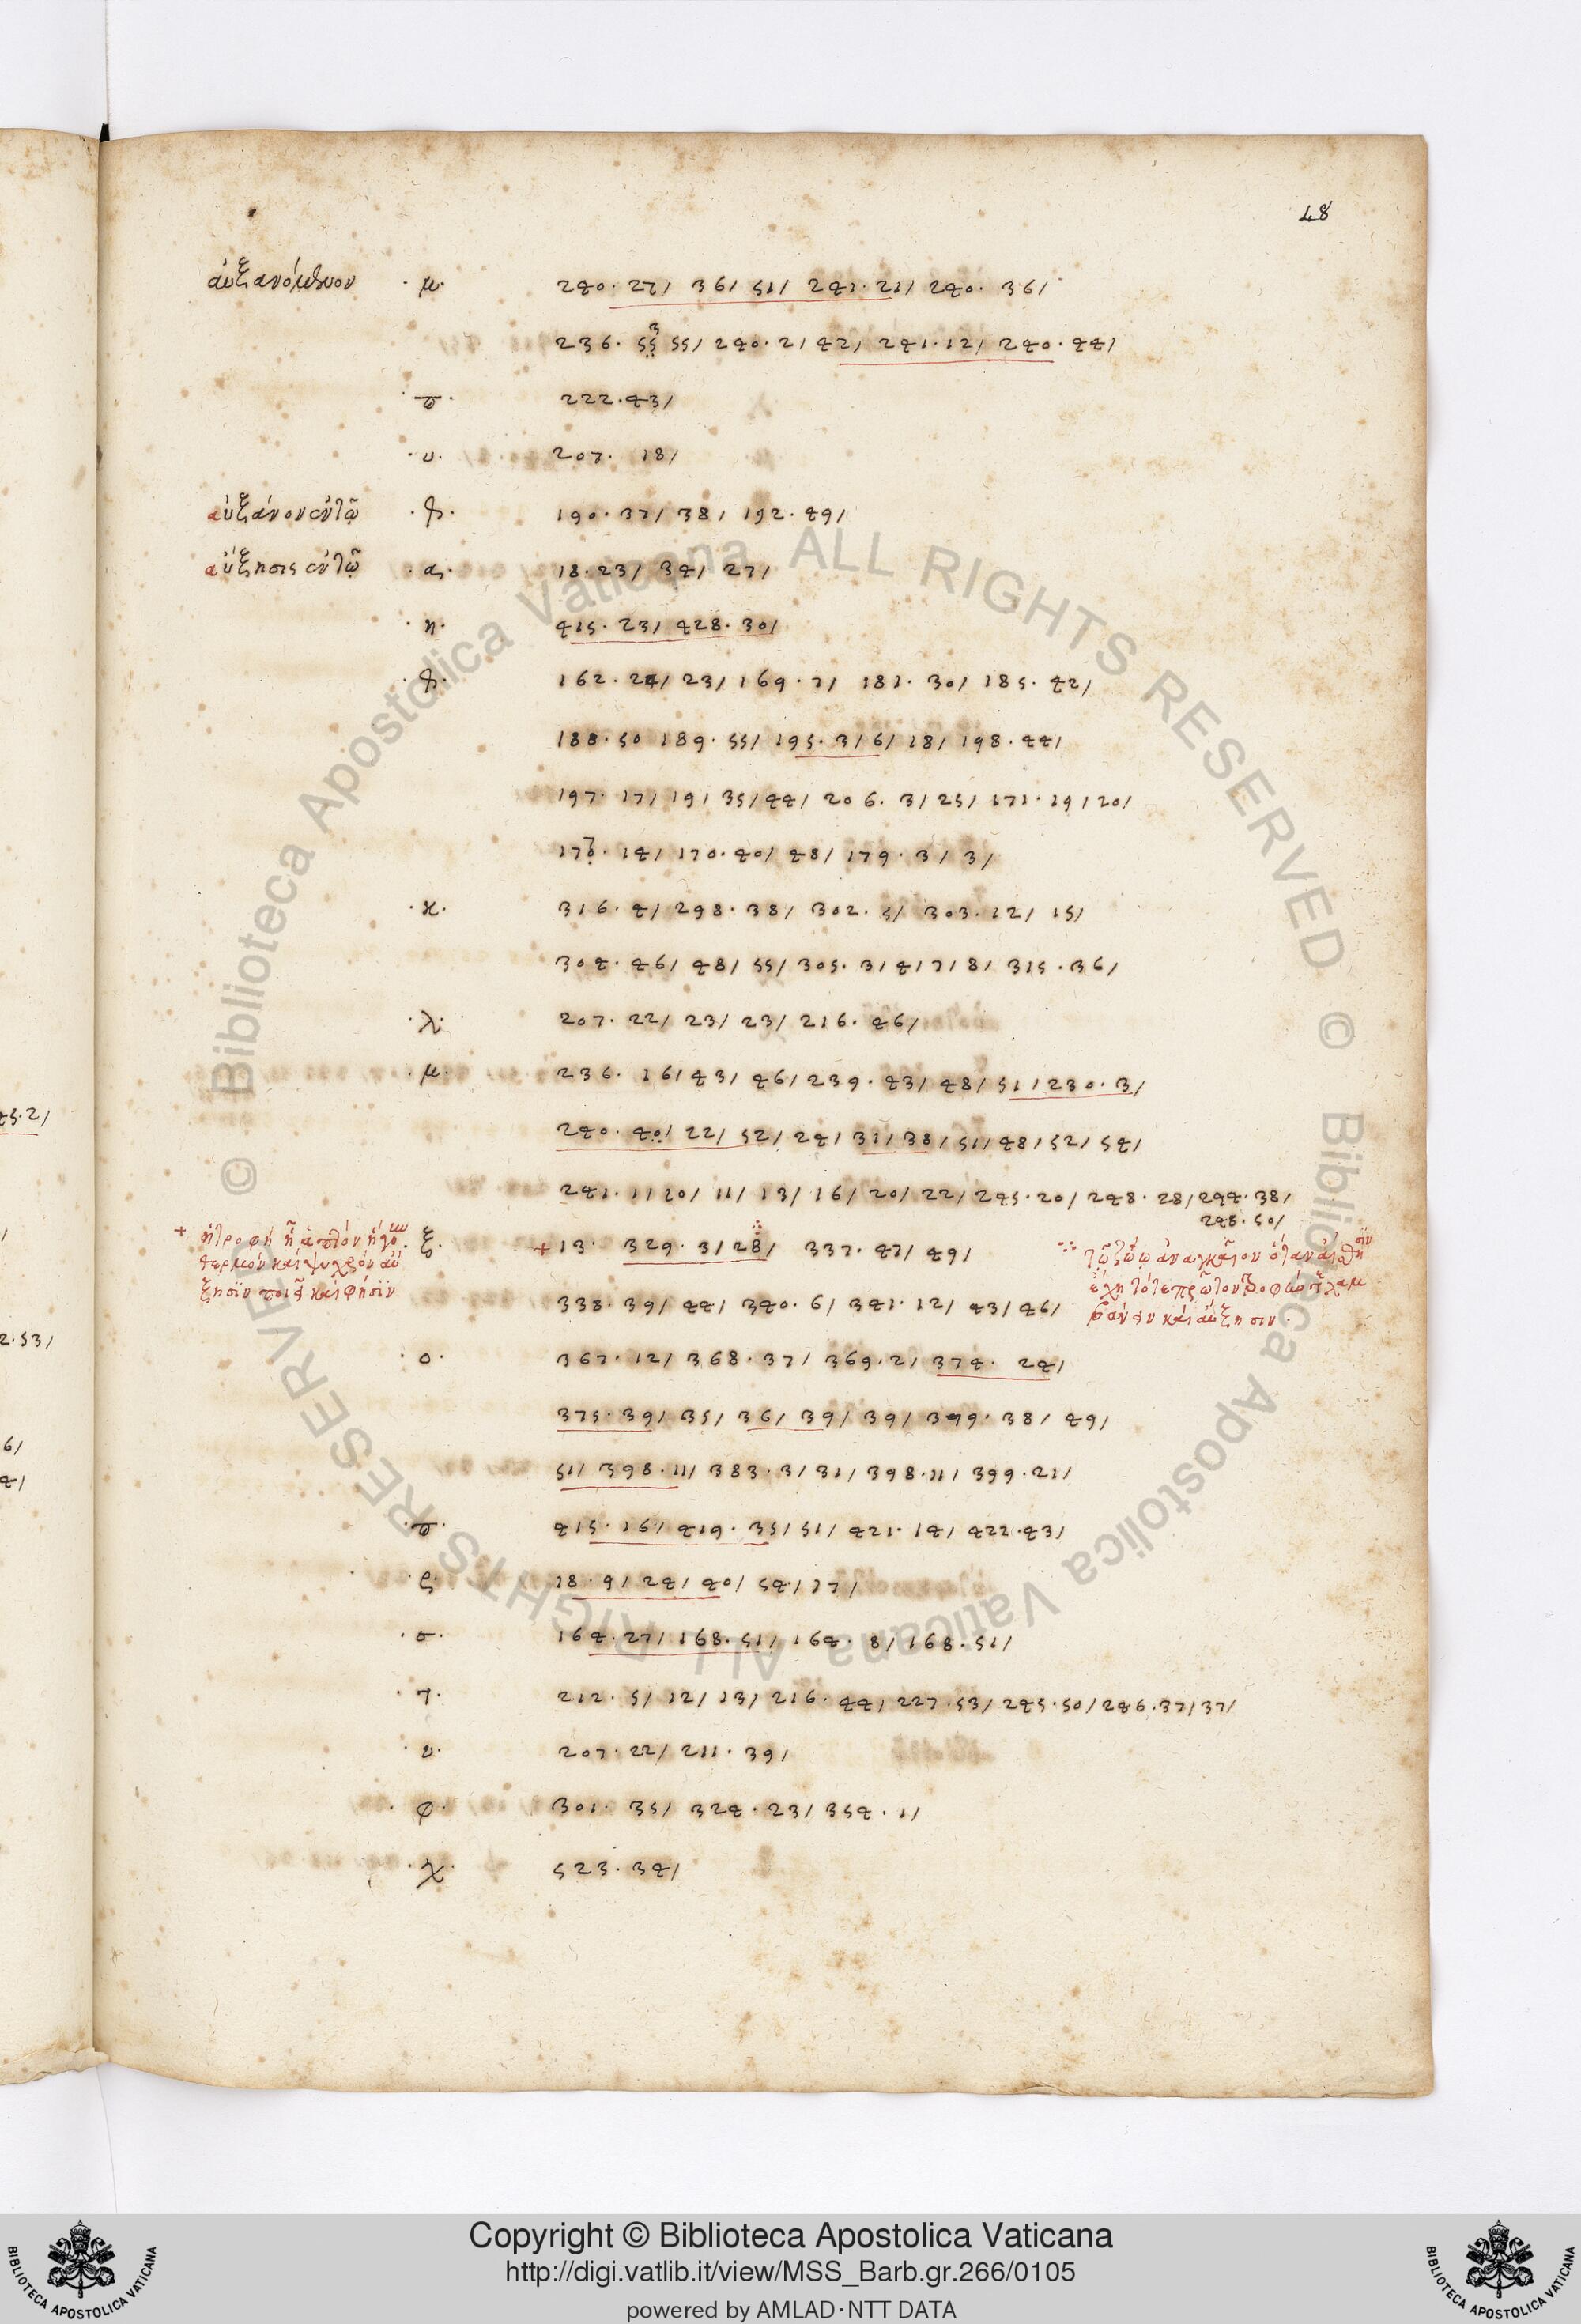 48
αὐξανόμενον · μ · 240 · 27/ 36/ 51/ 241 · 21/ 240 · 36/
236 · 55 3 55/ 240 · 2/ 42/ 241 · 12/ 240 · 44/
· π · 222 · 43/
· υ · 207 · 18/
αὐξάνον ἐν τῶ · θ · 190 · 37/ 38/ 192 · 49/
αὔξησις ἐν τῶ · α · 18 · 23/ 34/ 27/
· η · 415 · 23/ 428 · 30/
· θ · 162 · 24/ 23/ 169 · 7/ 181 · 30/ 185 · 42/
188 · 50 189 · 55/ 195 · 3/ 6/ 18/ 198 · 44/
197 · 17/ 19/ 35/ 44/ 206 · 3/ 25/ 171 · 19/ 20/
170 7 · 14/ 170 · 40/ 48/ 179 · 3/ 3/
· κ · 316 · 4/ 298 · 38/ 302 · 5/ 303 · 12/ 15/
304 · 46/ 48/ 55/ 305 · 3/ 4/ 7/ 8/ 315 · 36/
· λ · 207 · 22/ 23/ 23/ 216 · 46/
· μ · 236 · 16/ 43/ 46/ 239 · 43/ 48/ 51/ 230 · 3/
240 · 40/ 22/ 52/ 24/ 31/ 38/ 51/ 48/ 52/ 54/
241 · 1/ 20/ 11/ 13/ 16/ 20/ 22/ 245 · 20/ 248 · 28/ 244 · 38/
248 · 50/
+ ἡ τροφὴ · ξ · + 13 · 329 · 3/ 28/ 337 · 47/ 49/ τῶ ζώω ἀναγκαῖον ὅταν
θερμὸν καὶ ψυχρὸν αὔ
ξησϊν ποιεῖ καὶ φησϊν
ἔχη τότε πρῶτον
338 · 39/ 44/ 340 · 6/ 341 · 12/ 43/ 46/
βάνειν καὶ αὔξησιν ·
· ο · 367 · 12/ 368 · 37/ 369 · 2/ 374 · 24/
375 · 39/ 35/ 36/ 39/ 39/ 399 · 38/ 49/
51/ 398 · 11/ 383 · 3/ 31/ 398 · 11/ 399 · 21/
· π · 415 · 16/ 419 · 35/ 51/ 421 · 14/ 422 · 43/
· ρ · 18 · 9/ 24/ 40/ 54/ 17/
· σ · 164 · 27/ 168 · 51/ 164 · 8/ 168 · 51/
· τ · 212 · 5/ 12/ 13/ 216 · 44/ 227 · 53/ 245 · 50/ 246 · 37/ 37/
· υ · 207 · 22/ 211 · 39/
· φ · 301 · 35/ 324 · 23/ 354 · 1/
· χ · 523 · 34/
45 · 2/
2 · 53/
6/
4/
© Biblioteca Apostolica Vaticana ALL RIGHTS RESERVED © Biblioteca Apostolica Vaticana ALL RIGHTS RESERVED
Copyright © Biblioteca Apostolica Vaticana
http://digi.vatlib.it/view/MSS_Barb.gr.266/0105
powered by AMLAD · NTT DATA
BIBLIOTECA APOSTOLICA VATICANA
BIBLIOTECA APOSTOLICA VATICANA